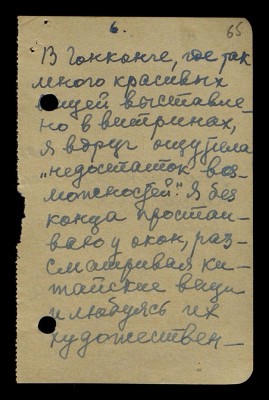 6.
65
В Гонконге, где так
много красивых
вещей выставле-
но в витринах,
я вдруг ощутила
„недостаток воз-
можностей". Я без
конца простаи-
ваю у окон, раз-
сматривая ки-
тайские вещи
и любуясь их
художествен-